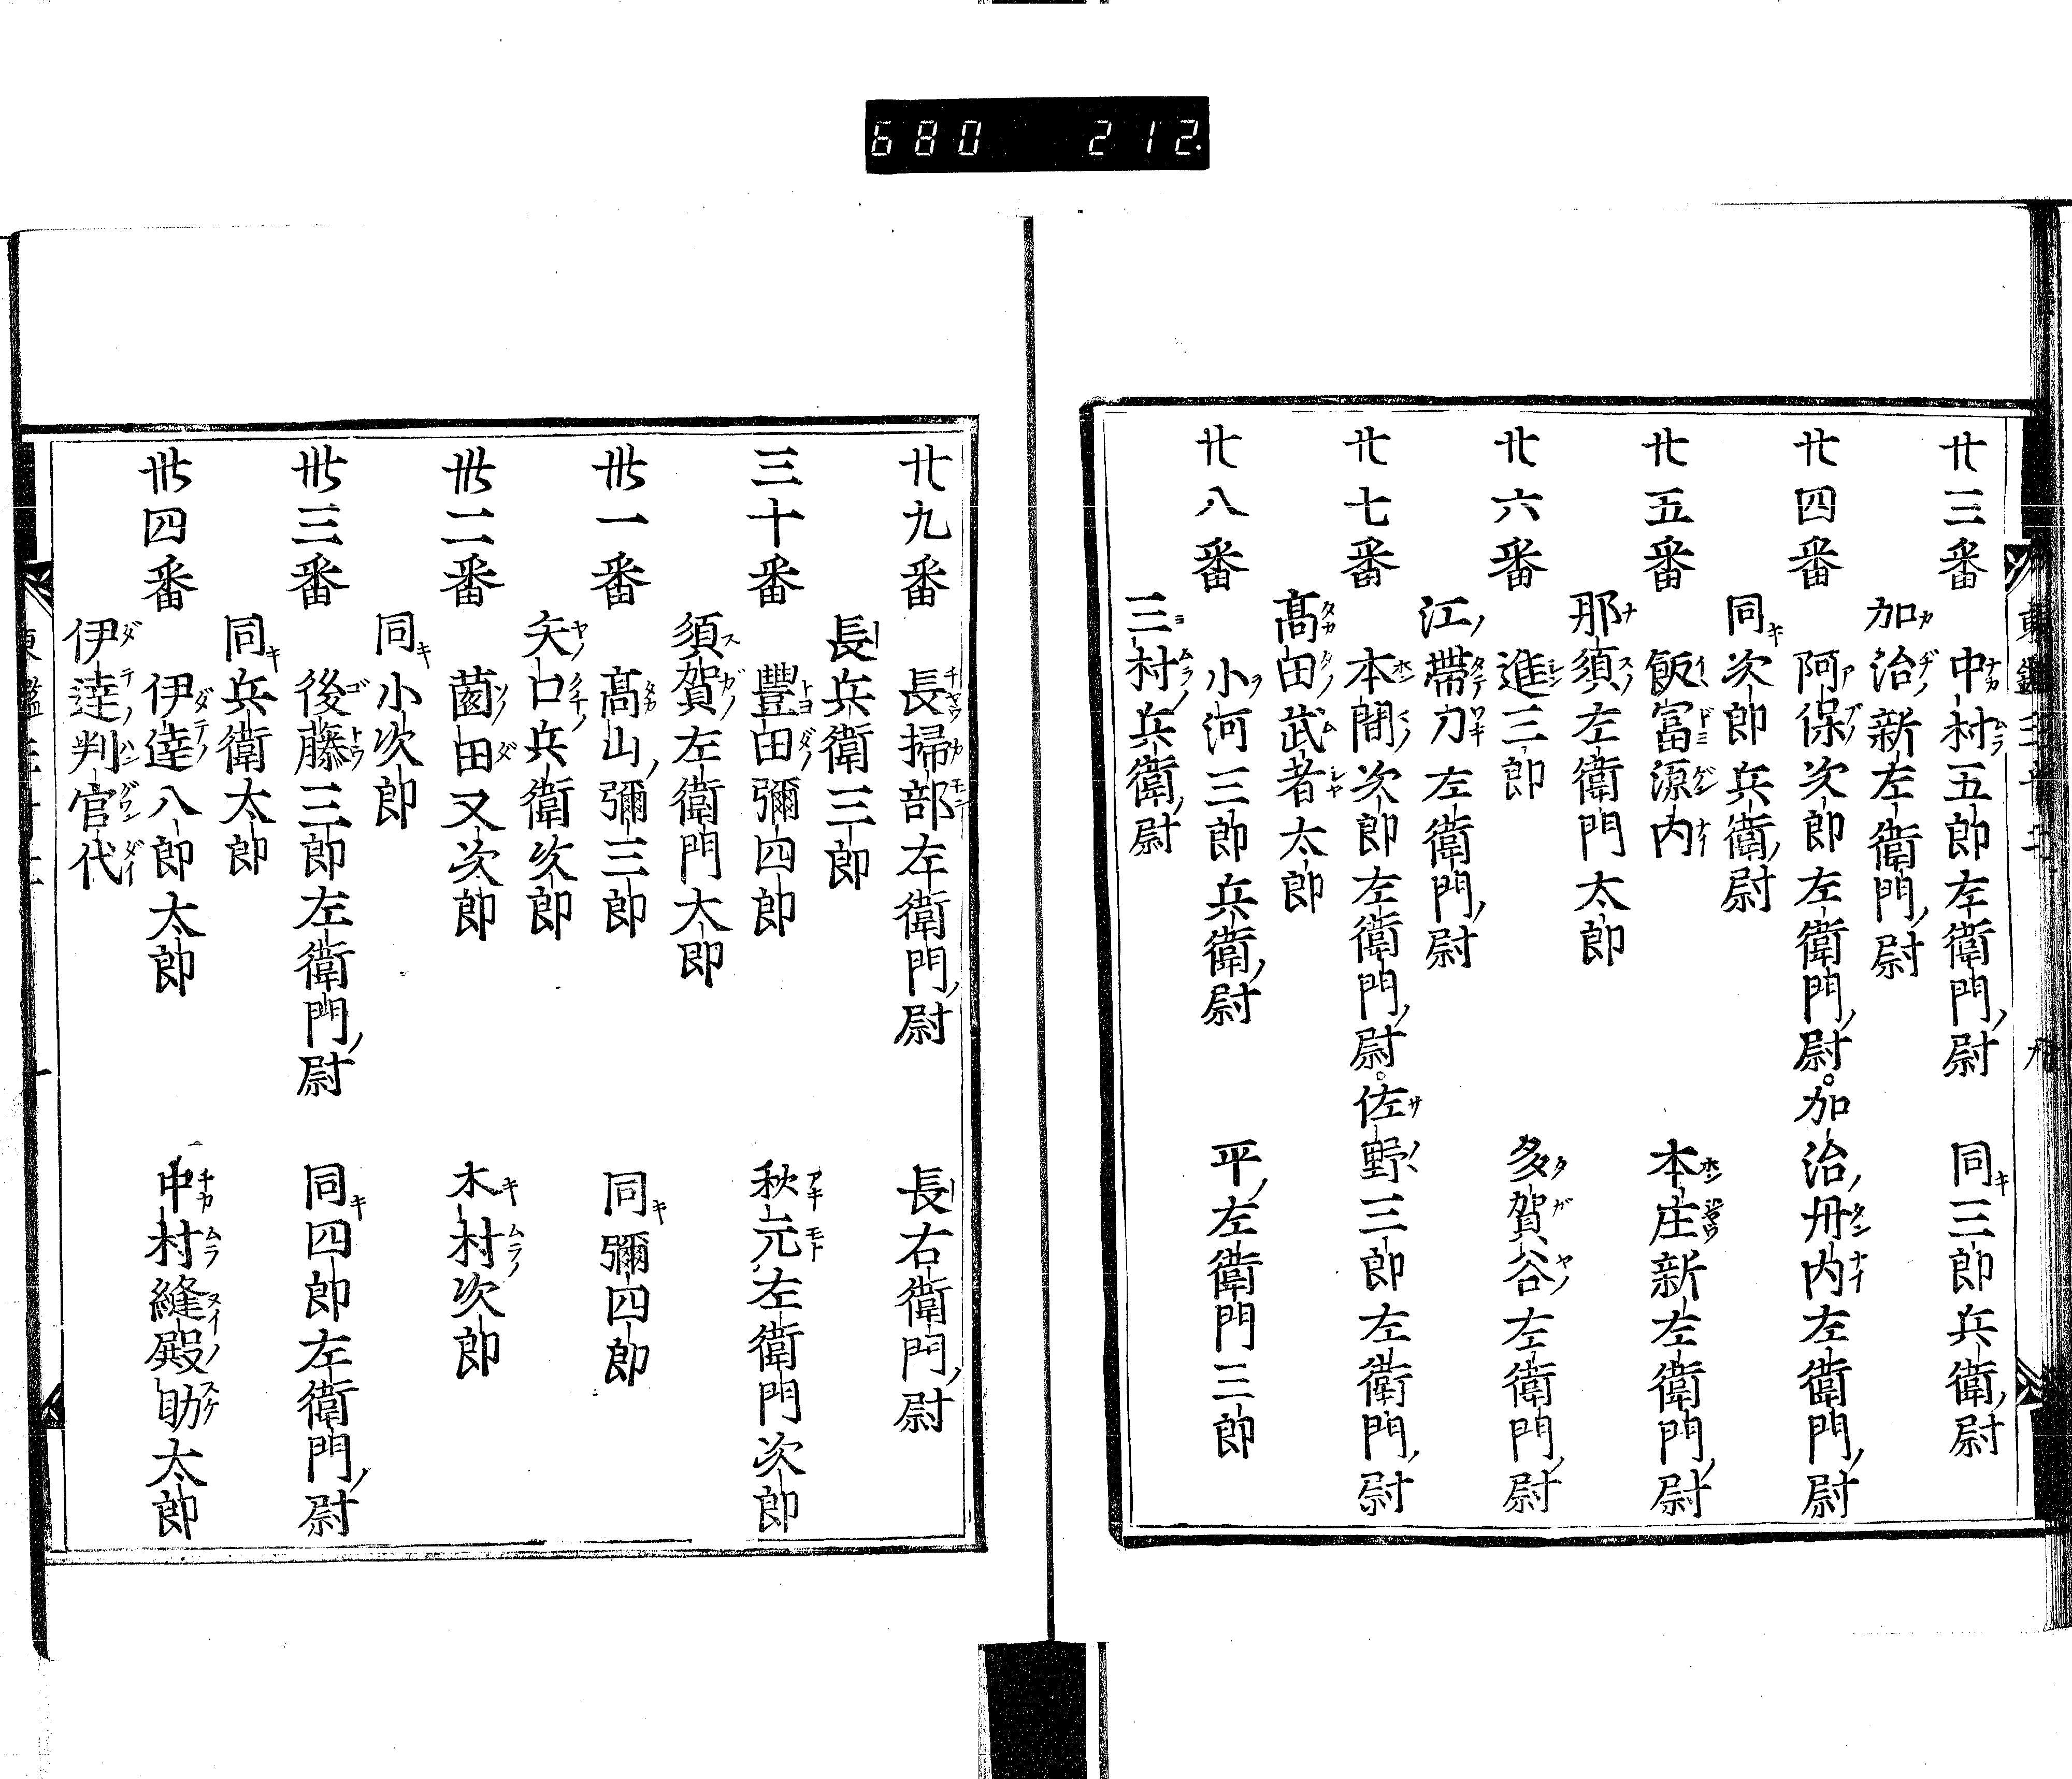 680 212.
廿三番 中村五郎左衛門ノ尉 同三郎兵衛ノ尉
加治新左衛門ノ尉
廿四番 阿保次郎左衛門ノ尉。加治ノ丹内左衛門ノ尉
同次郎兵衛ノ尉
廿五番 飯富源内 本庄新左衛門ノ尉
那須左衛門太郎
廿六番 進三郎 多賀谷左衛門ノ尉
江ノ帶刀左衛門ノ尉
廿七番 本間次郎左衛門ノ尉。佐野三郎左衛門ノ尉
髙田武者太郎
廿八番 小河三郎兵衛ノ尉 平ノ左衛門三郎
三村兵衛ノ尉
廿九番 長掃部左衛門ノ尉 長右衛門ノ尉
長兵衛三郎
三十番 豐田彌四郎 秋元左衛門次郎
須賀左衛門太郎
丗一番 髙山ノ彌三郎 同彌四郎
矢口兵衛次郎
丗二番 薗田又次郎 木村次郎
同小次郎
丗三番 後藤三郎左衛門ノ尉 同四郎左衛門ノ尉
同兵衛太郎
丗四番 伊達八郎太郎 中村縫殿助太郎
伊達判官代